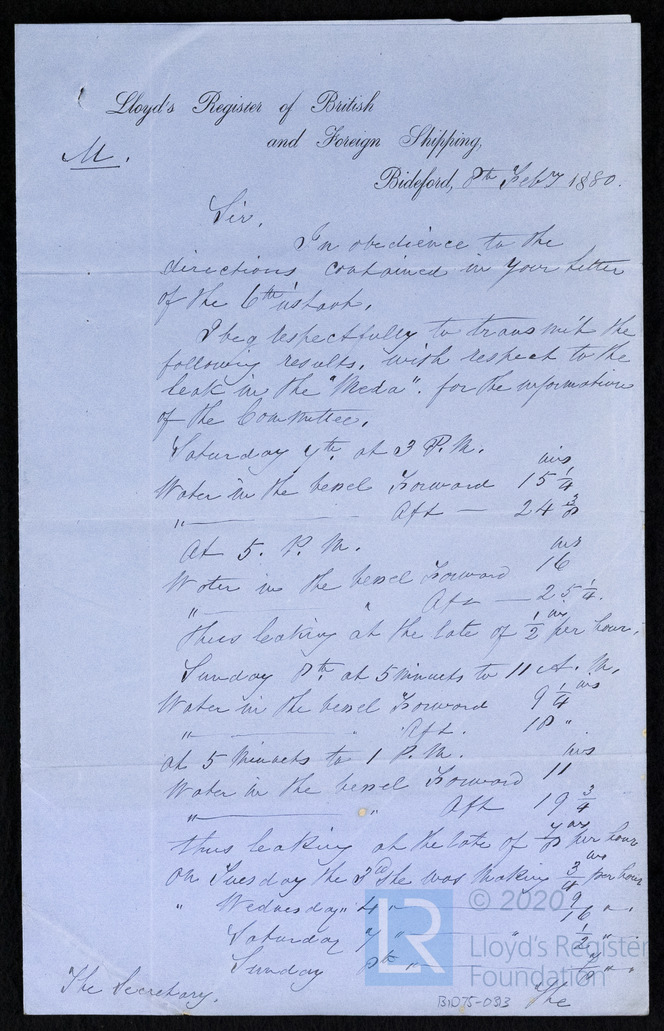 Lloyd's Register of British
and Foreign Shipping,
M.
Bideford, 8th Feby 1880.
Sir,
In obedience to the
directions contained in your letter
of the 6th instant,
I beg respectfully to transmit the
following results, with respect to the
leak in the "Meda". for the information
of the Committee.
Saturday 7th at 3 P.M.
ins
Water in the vessel Forward 15 1/4
" — Aft — 24 3/8
At 5. P.M.
ins
Water in the vessel Forward 16
" — " Aft — 25 1/4.
thus leaking at the late of 1/2 ins per hour,
Sunday 8th at 5 minuets to 11 A.M.
Water in the vessel Forward 9 1/4 ins
" — " Aft. 18 "
at 5 Minuets to 1 P.M.
ins
Water in the vessel Forward 11
" — " Aft 19 3/4
thus leaking at the late of 7/8 ins per hour
On Tuesday the 3rd she was making 3/4 ins per hour
" Wednesday " 4 " — 9/16 " "
Saturday 7 " — " 1/2 " "
Sunday 8th " — 7/8 " "
The Secretary.
The
© 2020
LR
Lloyd's Register
Foundation
BID75-093